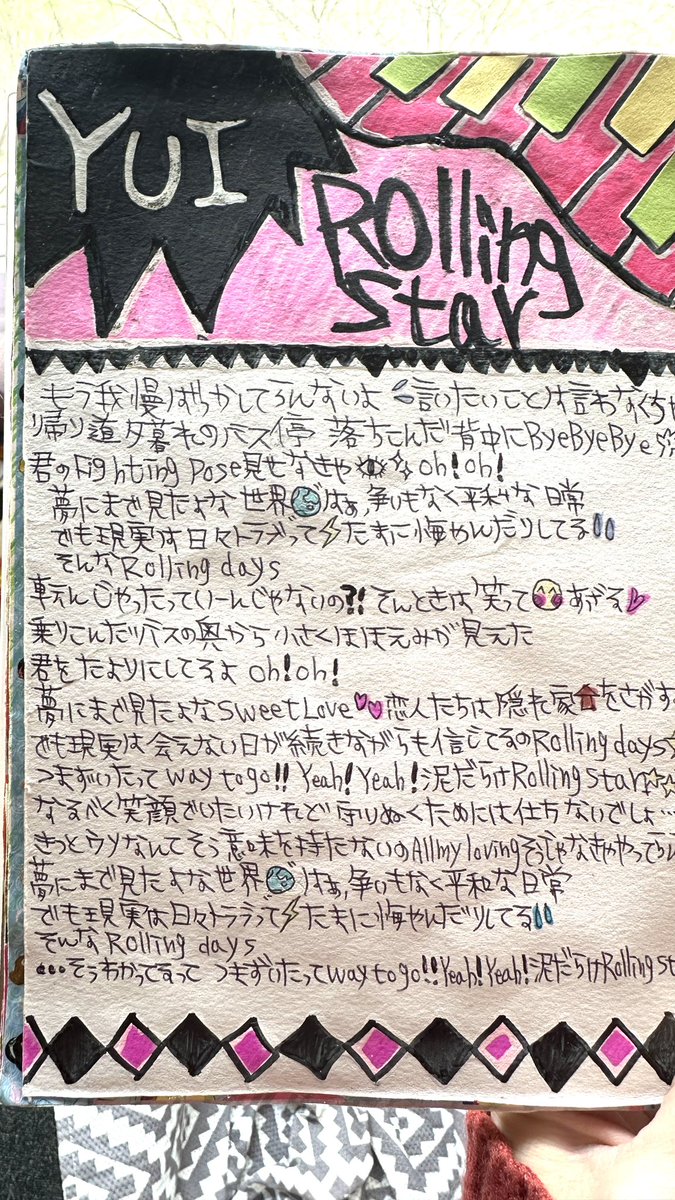 YUI
Rolling
star
もう我慢ばっかしてらんないよ 言いたいことは言わなくちゃ
帰り道夕暮れのバス停 落ちこんだ背中にByeByeBye
君のFighting Pose見せなきゃ oh!oh!
夢にまで見たよな世界はぁ,争いもなく平和な日常
でも現実は日々トラブって たまに悔やんだりしてる
そんなRolling days
転んじゃったっていーんじゃないの?! そんときは笑ってあげる
乗りこんだバスの奥から小さくほほえみが見えた
君をたよりにしてるよ oh!oh!
夢にまで見たよなSweet Love 恋人たちは隠れ家をさがす
でも現実は会えない日が続きながらも信じてるのRolling days
つまずいたってway to go!! Yeah! Yeah! 泥だらけRolling star
なるべく笑顔でいたいけれど 守りぬくためには仕方ないでしょ…
きっとウソなんてそう意味を持たないのAll my loving そうじゃなきゃやってら
夢にまで見たよな世界はぁ,争いもなく平和な日常
でも現実は日々トラブって たまに悔やんだりしてる
そんなRolling days
…そうわかってるって つまずいたってway to go!! Yeah! Yeah! 泥だらけRolling st